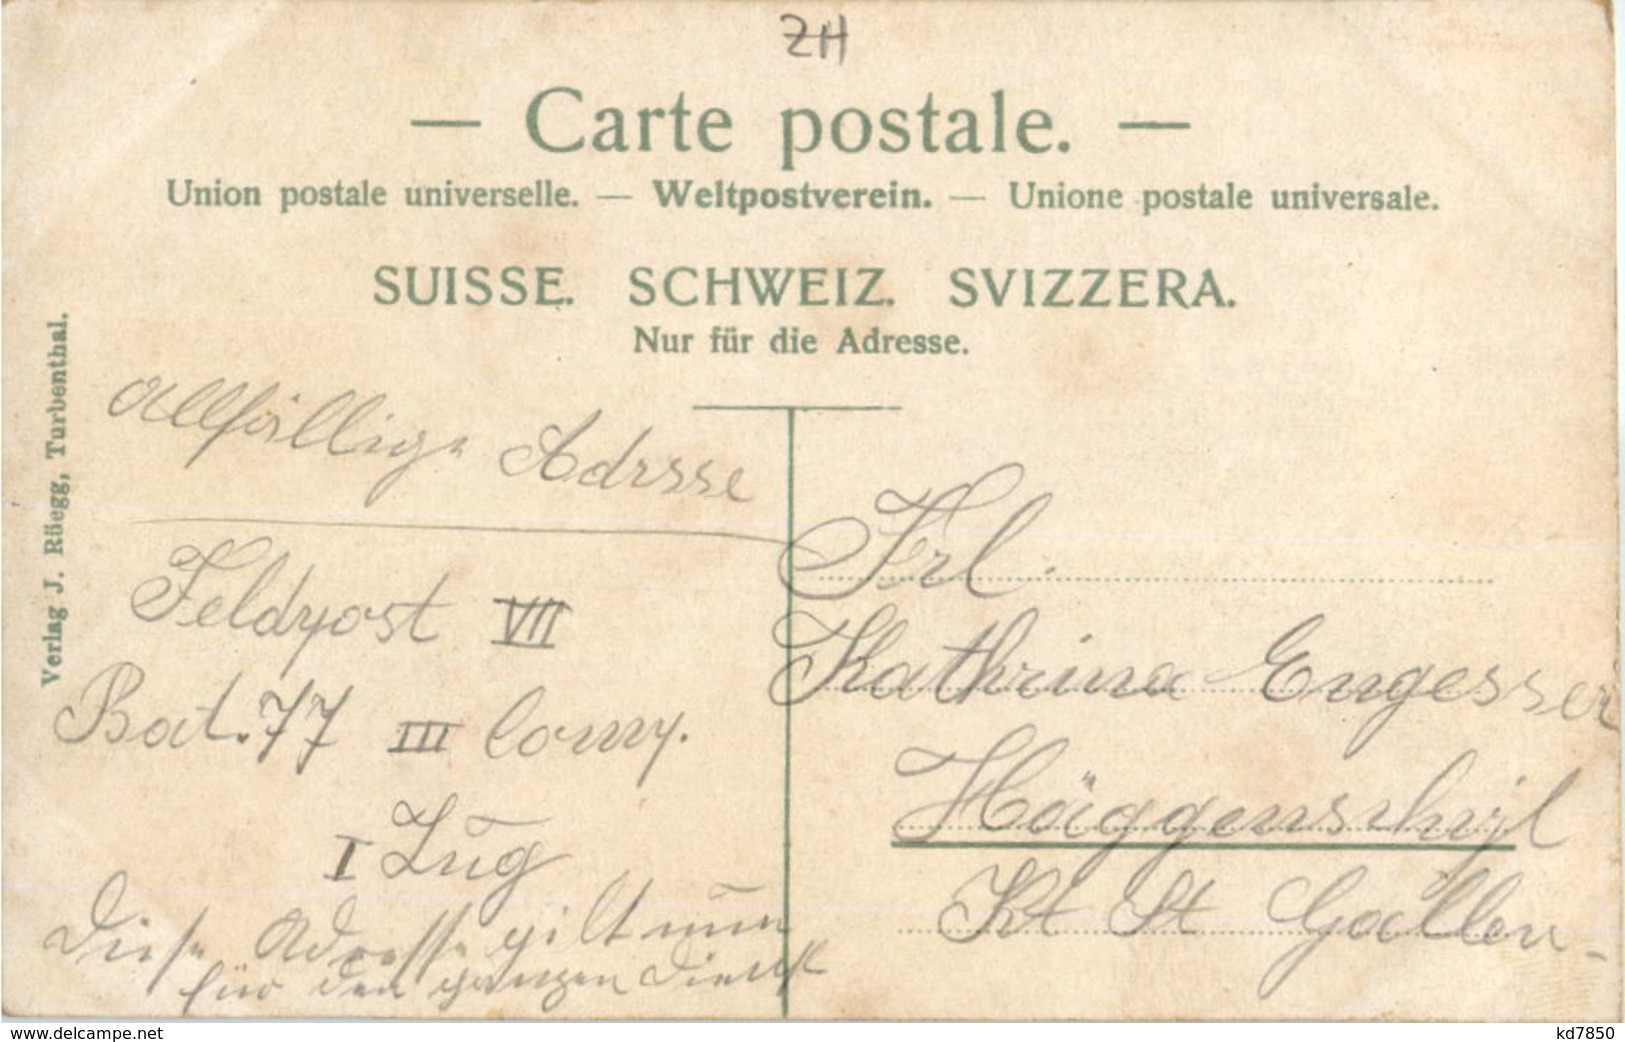 ZH
— Carte postale. —
Union postale universelle. — Weltpostverein. — Unione postale universale.
SUISSE. SCHWEIZ. SVIZZERA.
Nur für die Adresse.
Verlag J. Rüegg, Turbenthal.
Allfällige Adresse
Feldpost VII
Bat. 77 III Comp.
I Zug
Diese Adresse gilt nun
für den ganzen Dienst
Frl.
Kathrina Engesser
Häggenschyl
Kt St Gallen-
www.delcampe.net
kd7850